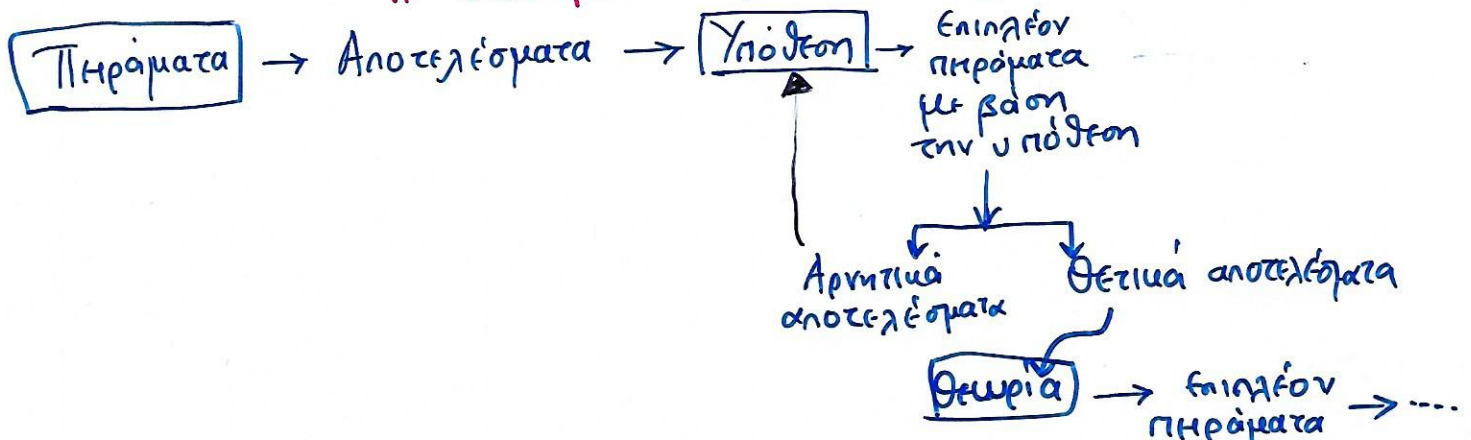 Πηράματα → Αποτελέσματα → Υπόθεση → Επιπλέον
πηράματα
με βάση
την υπόθεση
Αρνητικά
αποτελέσματα
Θετικά αποτελέσματα
Θεωρία → Επιπλέον
πηράματα → ....